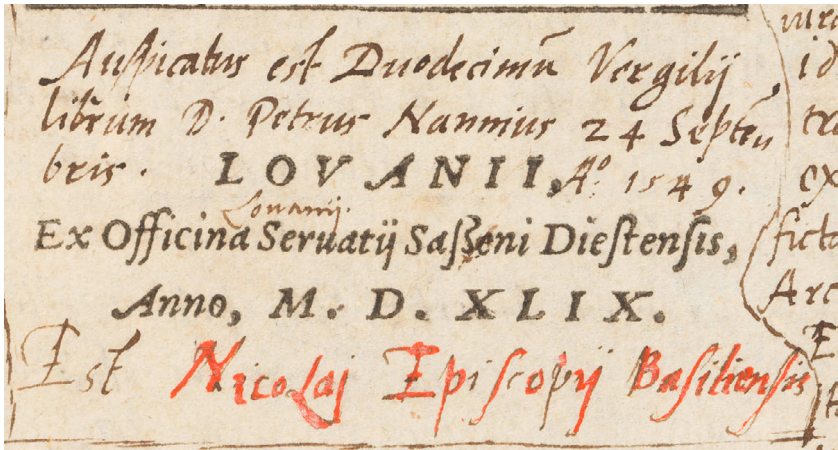 Auspicatus est Duodecimū Vergilij,
librum D. Petrus Nannius 24 Septēm
bris. LOVANII, A° 1549.
Lovanij.
Ex Officina Seruatij Saſſeni Dieſtenſis,
Anno, M. D. XLIX.
Est Nicolaj Epiſcopij Baſilienſis
id
ex
ficta
Arc